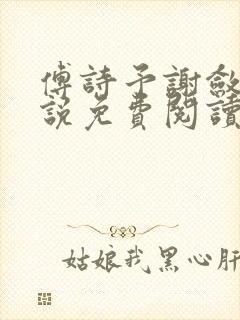 傅詩予謝斂
說免費閱讀
姑娘我黑心肝